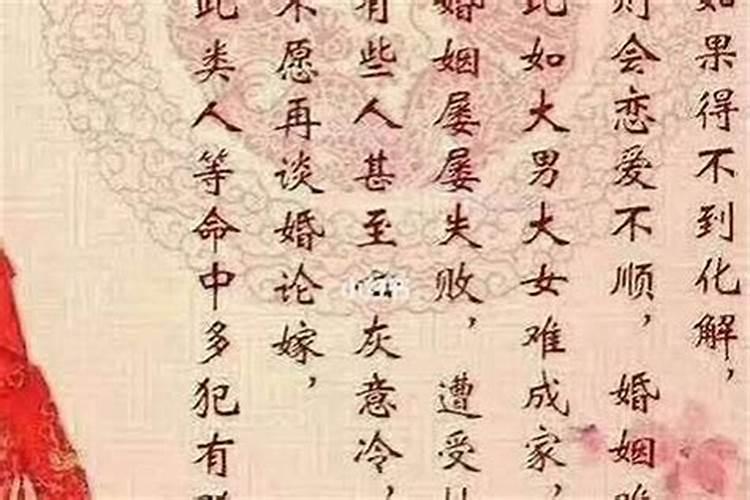 如果得不到化解，
则会恋爱不顺，婚姻
此如大男大女难成家，
婚姻屡屡失败，遭受
有些人甚至心灰意冷，
不愿再谈婚论嫁，
此类人等命中多犯有